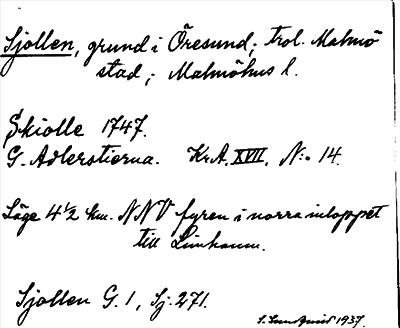 Sjollen, grund i Öresund; trol. Malmö
stad; Malmöhus l.
Skiolle 1747.
G. Adlerstierna. Kr.A. XVII. No. 14.
Läge 4½ km. NNV fyren i norra inloppet
till Limhamn.
Sjollen G. 1, Sj: 271.
1937.